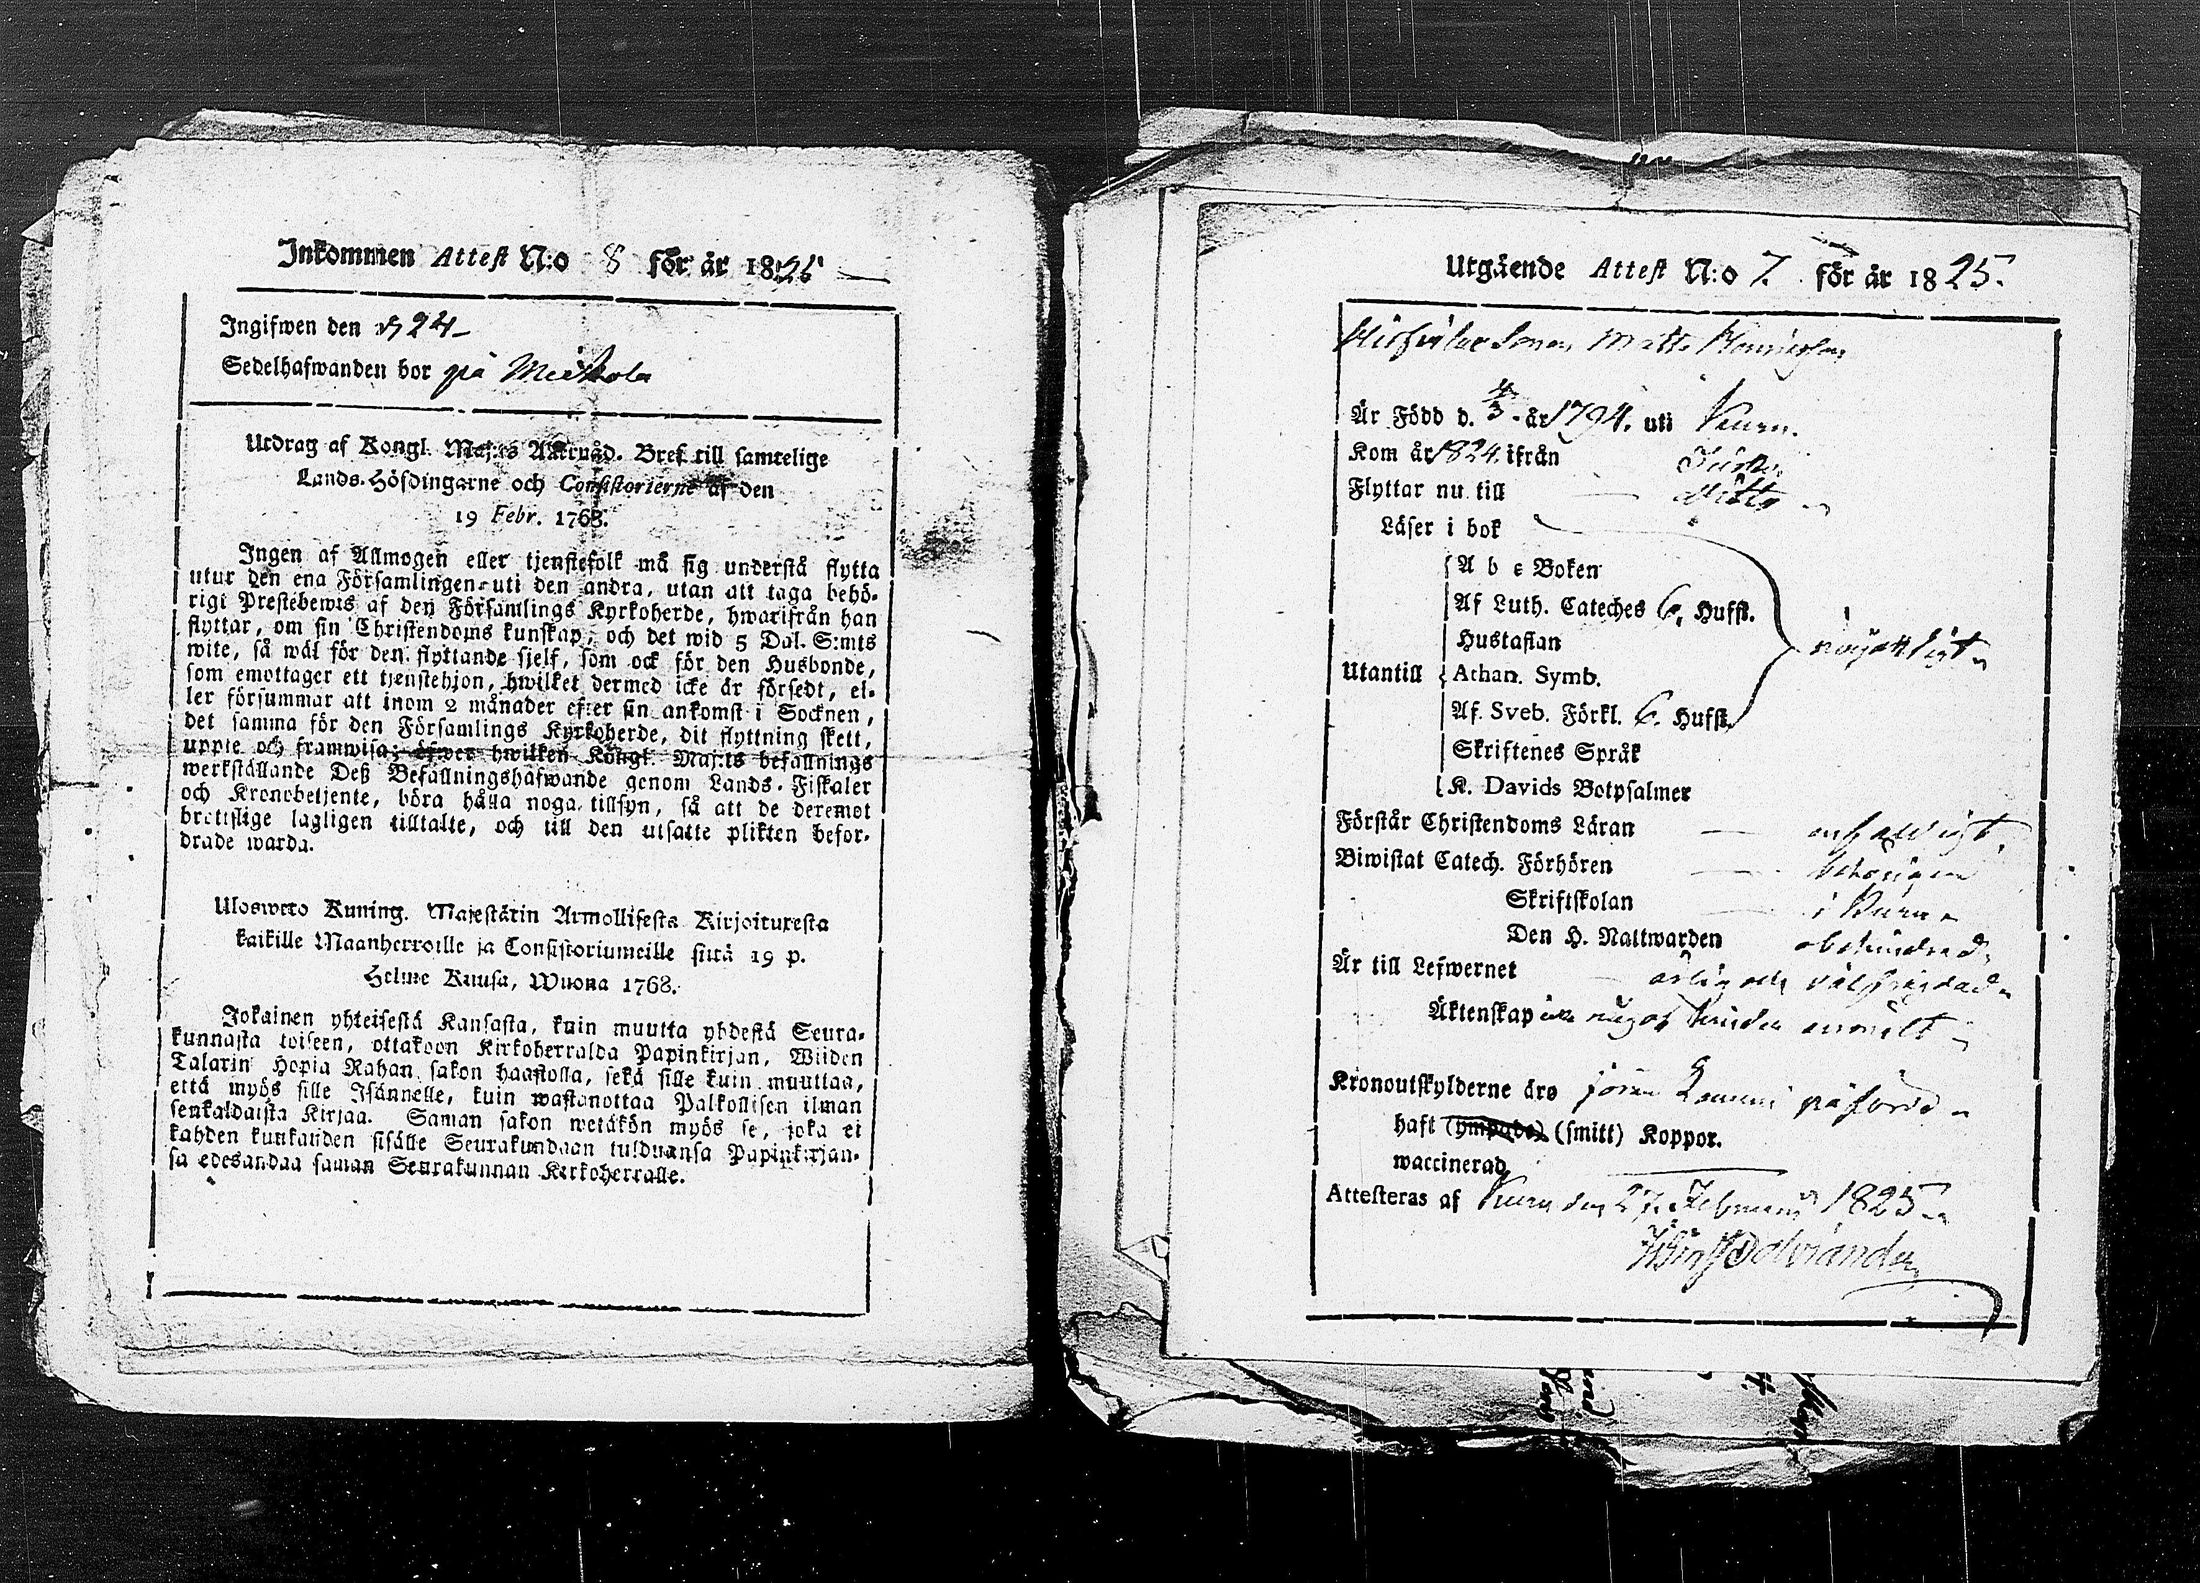 Inkommen Attest N:o 8 för år 1825
Ingifwen den 24
Sedelhafwanden bor på
Utdrag af Kongl. Maj:ts Allernåd. Bref till samtelige
Lands-Höfdingarne och Consistorierne af den
19 Febr. 1768.
Ingen af Allmogen eller tjenstefolk må sig understå flytta
utur den ena Församlingen uti den andra, utan att taga behö-
rigt Prestebewis af den Församlings Kyrkoherde, hwarifrån han
flyttar, om sin Christendoms kunskap, och det wid 5 Dal. S:mts
wite, så wäl för den flyttande sjelf, som ock för den Husbonde,
som emottager ett tjenstehjon, hwilket dermed icke är försedt, el-
ler försummar att inom 2 månader efter sin ankomst i Socknen,
det samma för den Församlings Kyrkoherde, dit flyttning skett,
uppte och framwisa; öfwer hwilken Kongl. Maj:ts befallnings
werkställande Deß Befallningshafwande genom Lands-Fiskaler
och Kronobetjente, böra hålla noga tillsyn, så att de deremot
brottslige lagligen tilltalte, och till den utsatte plikten befor-
drade warda.
Ulosweto Kuning. Majestätin Armollisesta Kirjoituxesta
kaikille Maanherroille ja Consistoriumeille siitä 19 p.
Helme Kuusa, Wuona 1768.
Jokainen yhteisestä Kansasta, kuin muutta yhdestä Seura-
kunnasta toiseen, ottakoon Kirkoherralda Papinkirjan, Wiiden
Talarin Hopia Rahan sakon haastolla, sekä sille kuin muuttaa,
että myös sille Isännelle, kuin wastanottaa Palkollisen ilman
senkaldaista Kirjaa. Saman sakon wetäkön myös se, joka ei
kahden kuukauden sisälle Seurakundaan tulduansa Papinkirjan-
sa edesandaa saman Seurakunnan Kirkoherralle.
Utgående Attest N:o 7. för år 1825.
Matts
Är Född d. 4/3 år 1794. uti Kuru.
Kom år 1824. ifrån
Flyttar nu till
Läser i bok
A b c Boken
Af Luth. Cateches 6. Hufst.
Hustaflan
Utantill Athan. Symb. nöjaktligt
Af. Sveb. Förkl. 6. Hufst.
Skriftenes Språk
K. Davids Botpsalmer
Förstår Christendoms Läran enfaldigt.
Biwistat Catech. Förhören behörigen
Skriftskolan i Kuru
Den H. Nattwarden obehindrad
Är till Lefwernet ärlig och välfrägdad
Äktenskap
Kronoutskylderne äro
haft (ympade) (smitt) Koppor.
waccinerad
Attesteras af Kuru den 27. Februarii 1825